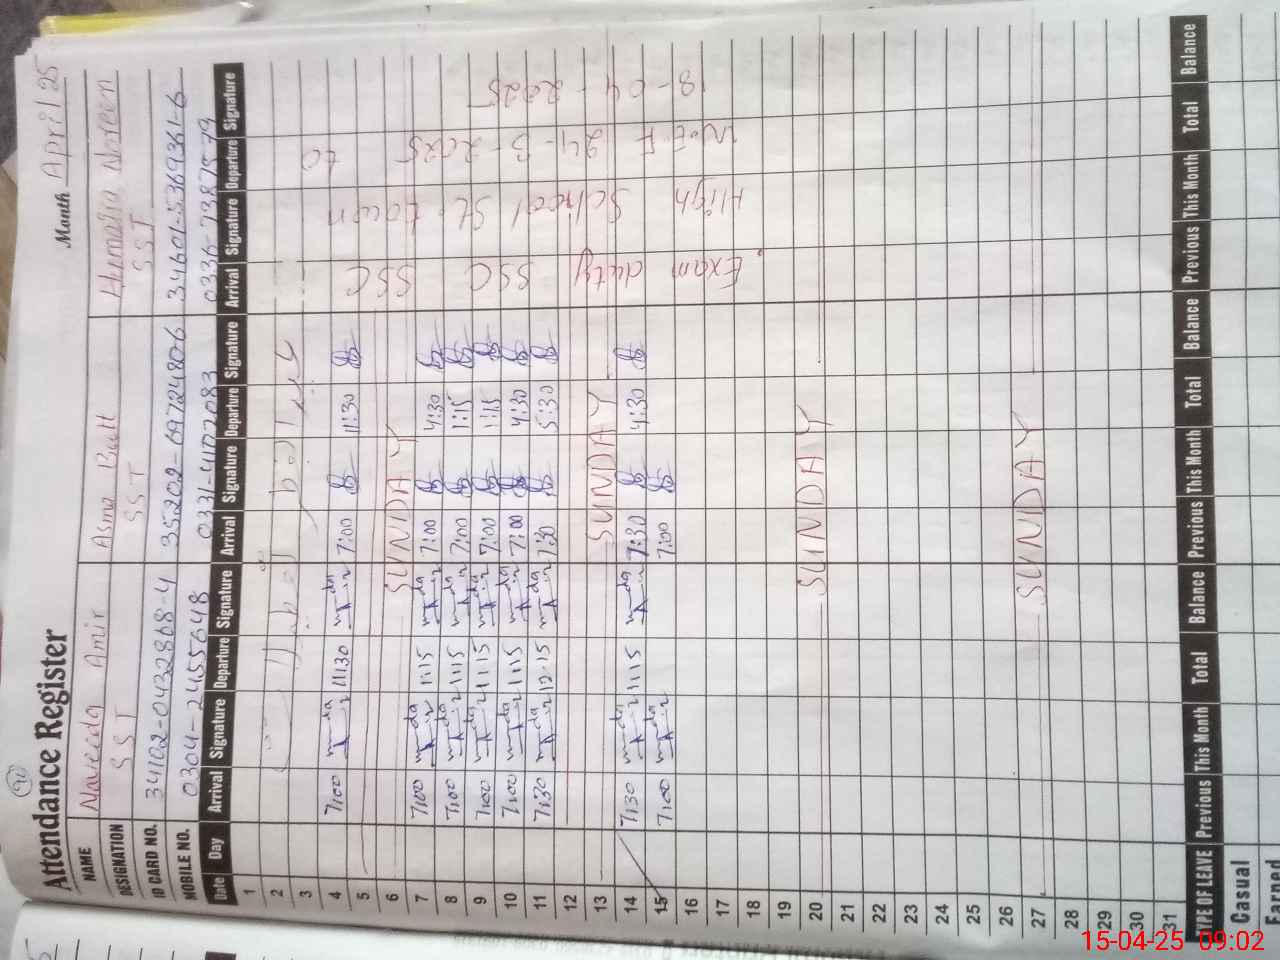 90
Attendance Register
Month April 25
NAME Naveeda Amir Asma Butt Humaira Noreen
DESIGNATION SST SST SST
ID CARD NO. 34102-0432868-4 35202-6972480-6 34601-5369361-6
MOBILE NO. 0304-2455648 0331-4102083
Date Day Arrival Signature Departure Signature Arrival Signature Departure Signature Arrival Signature Departure Signature
1
2
3
4 7:00 11:30 7:00 11:30
5
6 SUNDAY
7 7:00 1:15 7:00 4:30
8 7:00 1:15 7:00 1:15
9 7:00 1:15 7:00 1:15
10 7:00 1:15 7:00 4:30
11 7:30 12:15 7:30 5:30
12
13 SUNDAY
14 7:30 1:15 7:30 4:30
15 7:00 7:00
16
17
18
19
20 SUNDAY
21
22
23
24
25
26
27 SUNDAY
28
29
30
31
Exam duty SSC SSC
High School St. town
W.E.F 24-3-2025 to
-04-2025
TYPE OF LEAVE Previous This Month Total Balance Previous This Month Total Balance Previous This Month Total Balance
Casual
Earned
15-04-25 09:02